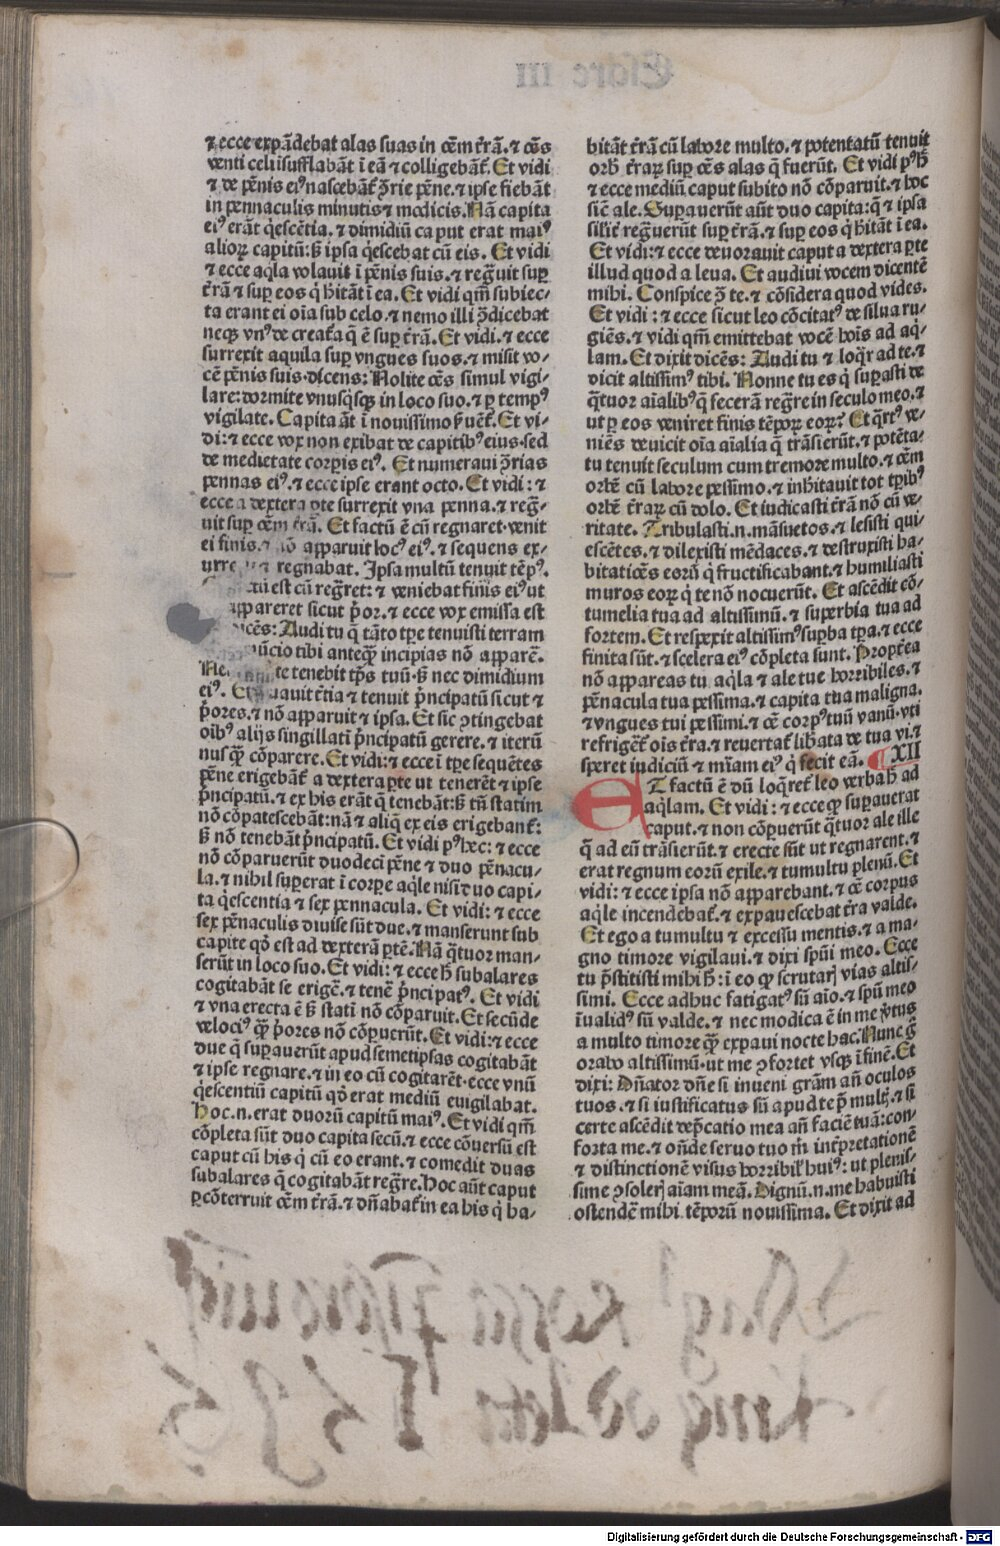 ⁊ ecce expādebat alas suas in oēm t̄rā. ⁊ oēs
venti celi īsufflabāt ī eā ⁊ colligebāt᷑. Et vidi
⁊ de pēnis ei⁹ nascebāt᷑ ꝯ̄rie pēne. ⁊ ipse fiebāt
in pennaculis minutis ⁊ modicis. Nā capita
ei⁹ erāt q̇escētia. ⁊ dimidiū caput erat mai⁹
alioꝝ capitū: ꝫ ipsa q̇escebat cū eis. Et vidi
⁊ ecce aq̇la volauit ī pēnis suis. ⁊ regͣuit suꝑ
t̄rā ⁊ suꝑ eos q̇ hītāt ī ea. Et vidi qm̄ subiec-
ta erant ei oīa sub celo. ⁊ nemo illi ꝯ̄dicebat
neqꝫ vn⁹ de creat᷑a q̄ ē suꝑ t̄rā. Et vidi. ⁊ ecce
surrexit aquila suꝑ vngues suos. ⁊ misit vo-
cē pēnis suis dicens: Nolite oēs simul vigi-
lare: dormite vnusq̇sqꝫ in loco suo. ⁊ ꝑ temp⁹
vigilate. Capita āt ī nouissimo ẜuēt᷑. Et vi-
di: ⁊ ecce vox non exibat de capitib⁹ eius. sed
de medietate corꝑis ei⁹. Et numeraui ꝯ̄rias
pennas ei⁹. ⁊ ecce ipse erant octo. Et vidi: ⁊
ecce a dextera ꝑte surrexit vna penna. ⁊ regͣ-
uit suꝑ oēm t̄rā. Et factū ē cū regnaret. venit
ei finis. ⁊ nō apparuit loc⁹ ei⁹. ⁊ sequens ex-
⁊ regnabat. Ipsa multū tenuit tēp⁹.
est cū regͣret: ⁊ veniebat finis ei⁹ ut
appareret sicut p̄or. ⁊ ecce vox emissa est
Audi tu q̄ tāto tꝑe tenuisti terram
tibi anteqꝫ̄ incipias nō apparē.
te tenebit tp̄s tuū. ꝫ nec dimidium
ei⁹. t̄tia ⁊ tenuit p̄ncipatū sicut ⁊
p̄ores. ⁊ nō apparuit ⁊ ipsa. Et sic ꝯtingebat
oīb⁹ alijs singillatī p̄ncipatū gerere. ⁊ iterū
nusqꝫ̄ cōparere. Et vidi: ⁊ ecce ī tꝑe sequētes
pēne erigebāt᷑ a dextera ꝑte ut tenerēt ⁊ ipse
p̄ncipatū. ⁊ ex his erāt q̄ tenebāt: ꝫ tn̄ statim
nō cōpatescebāt: nā ⁊ aliq̄ ex eis erigebant᷑:
ꝫ nō tenebāt p̄ncipatū. Et vidi p⁹ hec: ⁊ ecce
nō cōparuerūt duodecī pēne ⁊ duo pēnacu-
la. ⁊ nihil suꝑerat ī corꝑe aq̇le nisi duo capi-
ta q̇escentia ⁊ sex pennacula. Et vidi: ⁊ ecce
sex pēnaculis diuise sūt due. ⁊ manserunt sub
capite qd̄ est ad dexterā ꝑtē. Nā q̄tuor man-
serūt in loco suo. Et vidi: ⁊ ecce h̄ subalares
cogitabāt se erigē. ⁊ tenē p̄ncipat⁹. Et vidi
⁊ vna erecta ē ꝫ statī nō cōparuit. Et secūde
veloci⁹ qꝫ̄ p̄ores nō cōꝑuerūt. Et vidi: ⁊ ecce
due q̄ suꝑauerūt apud semetipsas cogitabāt
⁊ ipse regnare. ⁊ in eo cū cogitarēt. ecce vnū
q̇escentiū capitū qd̄ erat mediū euigilabat.
Hoc .n. erat duorū capitū mai⁹. Et vidi qm̄
cōpleta sūt duo capita secū. ⁊ ecce cōuersū est
caput cū his q̇ cū eo erant. ⁊ comedit duas
subalares q̄ cogitabāt regͣre. Hoc aūt caput
ꝑcōterruit oēm t̄rā. ⁊ dn̄abat᷑ in ea his q̇ ha-
bitāt t̄rā cū labore multo. ⁊ potentatū tenuit
orb̄ t̄raꝝ suꝑ oēs alas q̄ fuerūt. Et vidi p⁹ h̄
⁊ ecce mediū caput subito nō cōparuit. ⁊ hoc
sic̄ ale. Suꝑauerūt aūt duo capita: q̄ ⁊ ipsa
silīt᷑ regͣuerūt suꝑ t̄rā. ⁊ suꝑ eos q̇ hītāt ī ea.
Et vidi: ⁊ ecce deuorauit caput a dextera ꝑte
illud quod a leua. Et audiui vocem dicentē
mihi. Conspice ꝯ̄ te. ⁊ cōsidera quod vides.
Et vidi: ⁊ ecce sicut leo cōcitat⁹ de silua ru-
giēs. ⁊ vidi qm̄ emittebat vocē hoīs ad aq̇-
lam. Et dixit dicēs: Audi tu ⁊ loq̇r ad te. ⁊
dicit altissim⁹ tibi. Nonne tu es q̇ suꝑasti de
q̄tuor aīalib⁹ q̄ fecerā regͣre in seculo meo. ⁊
ut ꝑ eos veniret finis tēpoꝝ eoꝝ? Et q̄rt⁹ ve-
niēs deuicit oīa aīalia q̄ trāsierūt. ⁊ potēta-
tu tenuit seculum cum tremore multo. ⁊ oēm
orbē cū labore pessimo. ⁊ inhītauit tot tꝑib⁹
orbē t̄raꝝ cū dolo. Et iudicasti t̄rā nō cū ve-
ritate. Tribulasti .n. māsuetos. ⁊ lesisti qui-
escētes. ⁊ dilexisti mēdaces. ⁊ destruxisti ha-
bitatiōes eorū q̇ fructificabant. ⁊ humiliasti
muros eoꝝ q̇ te nō nocuerūt. Et ascēdit cō-
tumelia tua ad altissimū. ⁊ superbia tua ad
fortem. Et respexit altissim⁹ suꝑba tꝑa. ⁊ ecce
finita sūt. ⁊ scelera ei⁹ cōpleta sunt. Propt̄ea
nō appareas tu aq̇la ⁊ ale tue horribiles. ⁊
pēnacula tua pessima. ⁊ capita tua maligna.
⁊ vngues tui pessimi. ⁊ oē corp⁹ tuū vanū. vti
refrigēt᷑ oīs t̄ra. ⁊ reuertat᷑ lib̄ata de tua vi. ⁊
speret iudiciū ⁊ mīam ei⁹ q̇ fecit eā. ¶ XII
ET factū ē dū loq̇ret᷑ leo verba h̄ ad
aq̇lam. Et vidi: ⁊ ecce qꝫ suꝑauerat
caput. ⁊ non cōꝑuerūt q̄tuor ale ille
q̄ ad eū trāsierūt. ⁊ erecte sūt ut regnarent. ⁊
erat regnum eorū exile. ⁊ tumultu plenū. Et
vidi: ⁊ ecce ipsa nō apparebant. ⁊ oē corpus
aq̇le incendebat᷑. ⁊ expauescebat t̄ra valde.
Et ego a tumultu ⁊ excessu mentis. ⁊ a ma-
gno timore vigilaui. ⁊ dixi spūi meo. Ecce
tu p̄stitisti mihi h̄: ī eo qꝫ scrutarꝭ vias altis-
simi. Ecce adhuc fatigat⁹ sū aīo. ⁊ spū meo
īualid⁹ sū valde. ⁊ nec modica ē in me v̇tus
a multo timore qꝫ̄ expaui nocte hac. Nunc gͦ
orabo altissimū. ut me ꝯfortet vsqꝫ ī finē. Et
dixi: Dn̄ator dn̄e si inueni grām an̄ oculos
tuos. ⁊ si iustificatus sū apud te p̄ multꝭ. ⁊ si
certe ascēdit dep̄catio mea an̄ faciē tuā: con-
forta me. ⁊ on̄de seruo tuo m̄ int᷑pretationē
⁊ distinctionē visus horribil᷑ hui⁹: ut plenis-
sime ꝯsolerꝭ aīam meā. Dignū .n. me habuisti
ostendē mihi tēporū nouissima. Et dixit ad
Digitalisierung gefördert durch die Deutsche Forschungsgemeinschaft - DFG